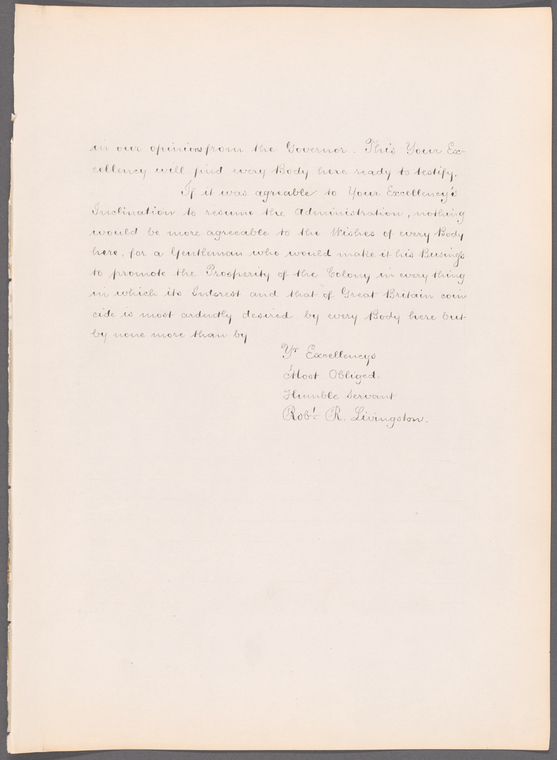 in our opinions from the Governor. This Your Ex-
cellency will find every Body here ready to testify.
If it was agreable to Your Excellency's
Inclination to resume the Administration, nothing
would be more agreeable to the Wishes of every Body
here, for a Gentleman who would make it his Business
to promote the Prosperity of the Colony in every thing
in which its Interest and that of Great Britain coin
cide is most ardently desired by every Body here but
by none more than by
Yr Excellencys
Most Obliged
Humble Servant
Robt R. Livingston.